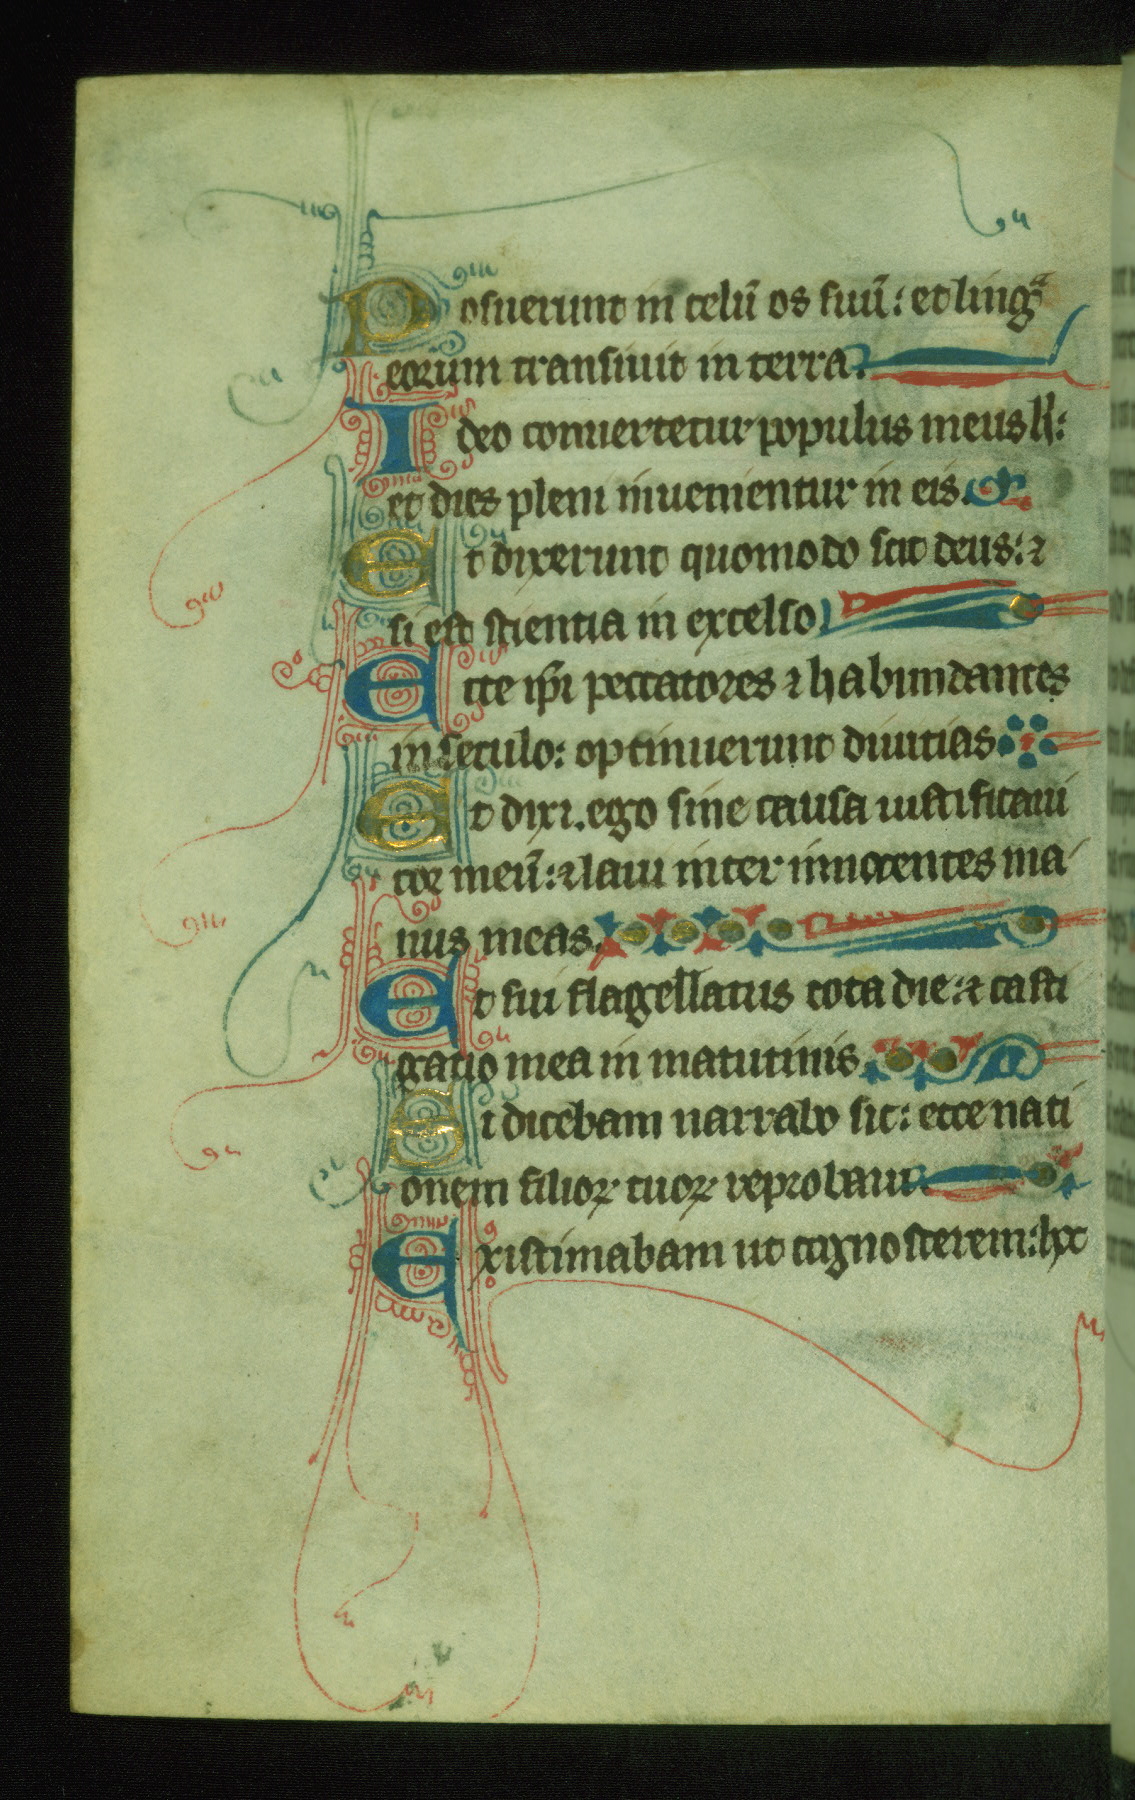 Posuerunt in celū os suū: et lingᵃ
eorum transiuit in terra.
Ideo conuertetur populus meus h̄:
et dies pleni inuenientur in eis.
Et dixerunt quomodo scit deus: ⁊
si est scientia in excelso
Ecce ip̄i peccatores ⁊ habundantes
in seculo: optinuerunt diuitias
Et dixi. ego sine causa iustificaui
cor meū: ⁊ laui inter innocentes ma
nus meas.
Et fui flagellatus tota die: ⁊ casti
gatio mea in matutinis.
Si dicebam narrabo sic: ecce nati
onem filioꝝ tuoꝝ reprobaui.
Existimabam ut cognoscerem: hoc